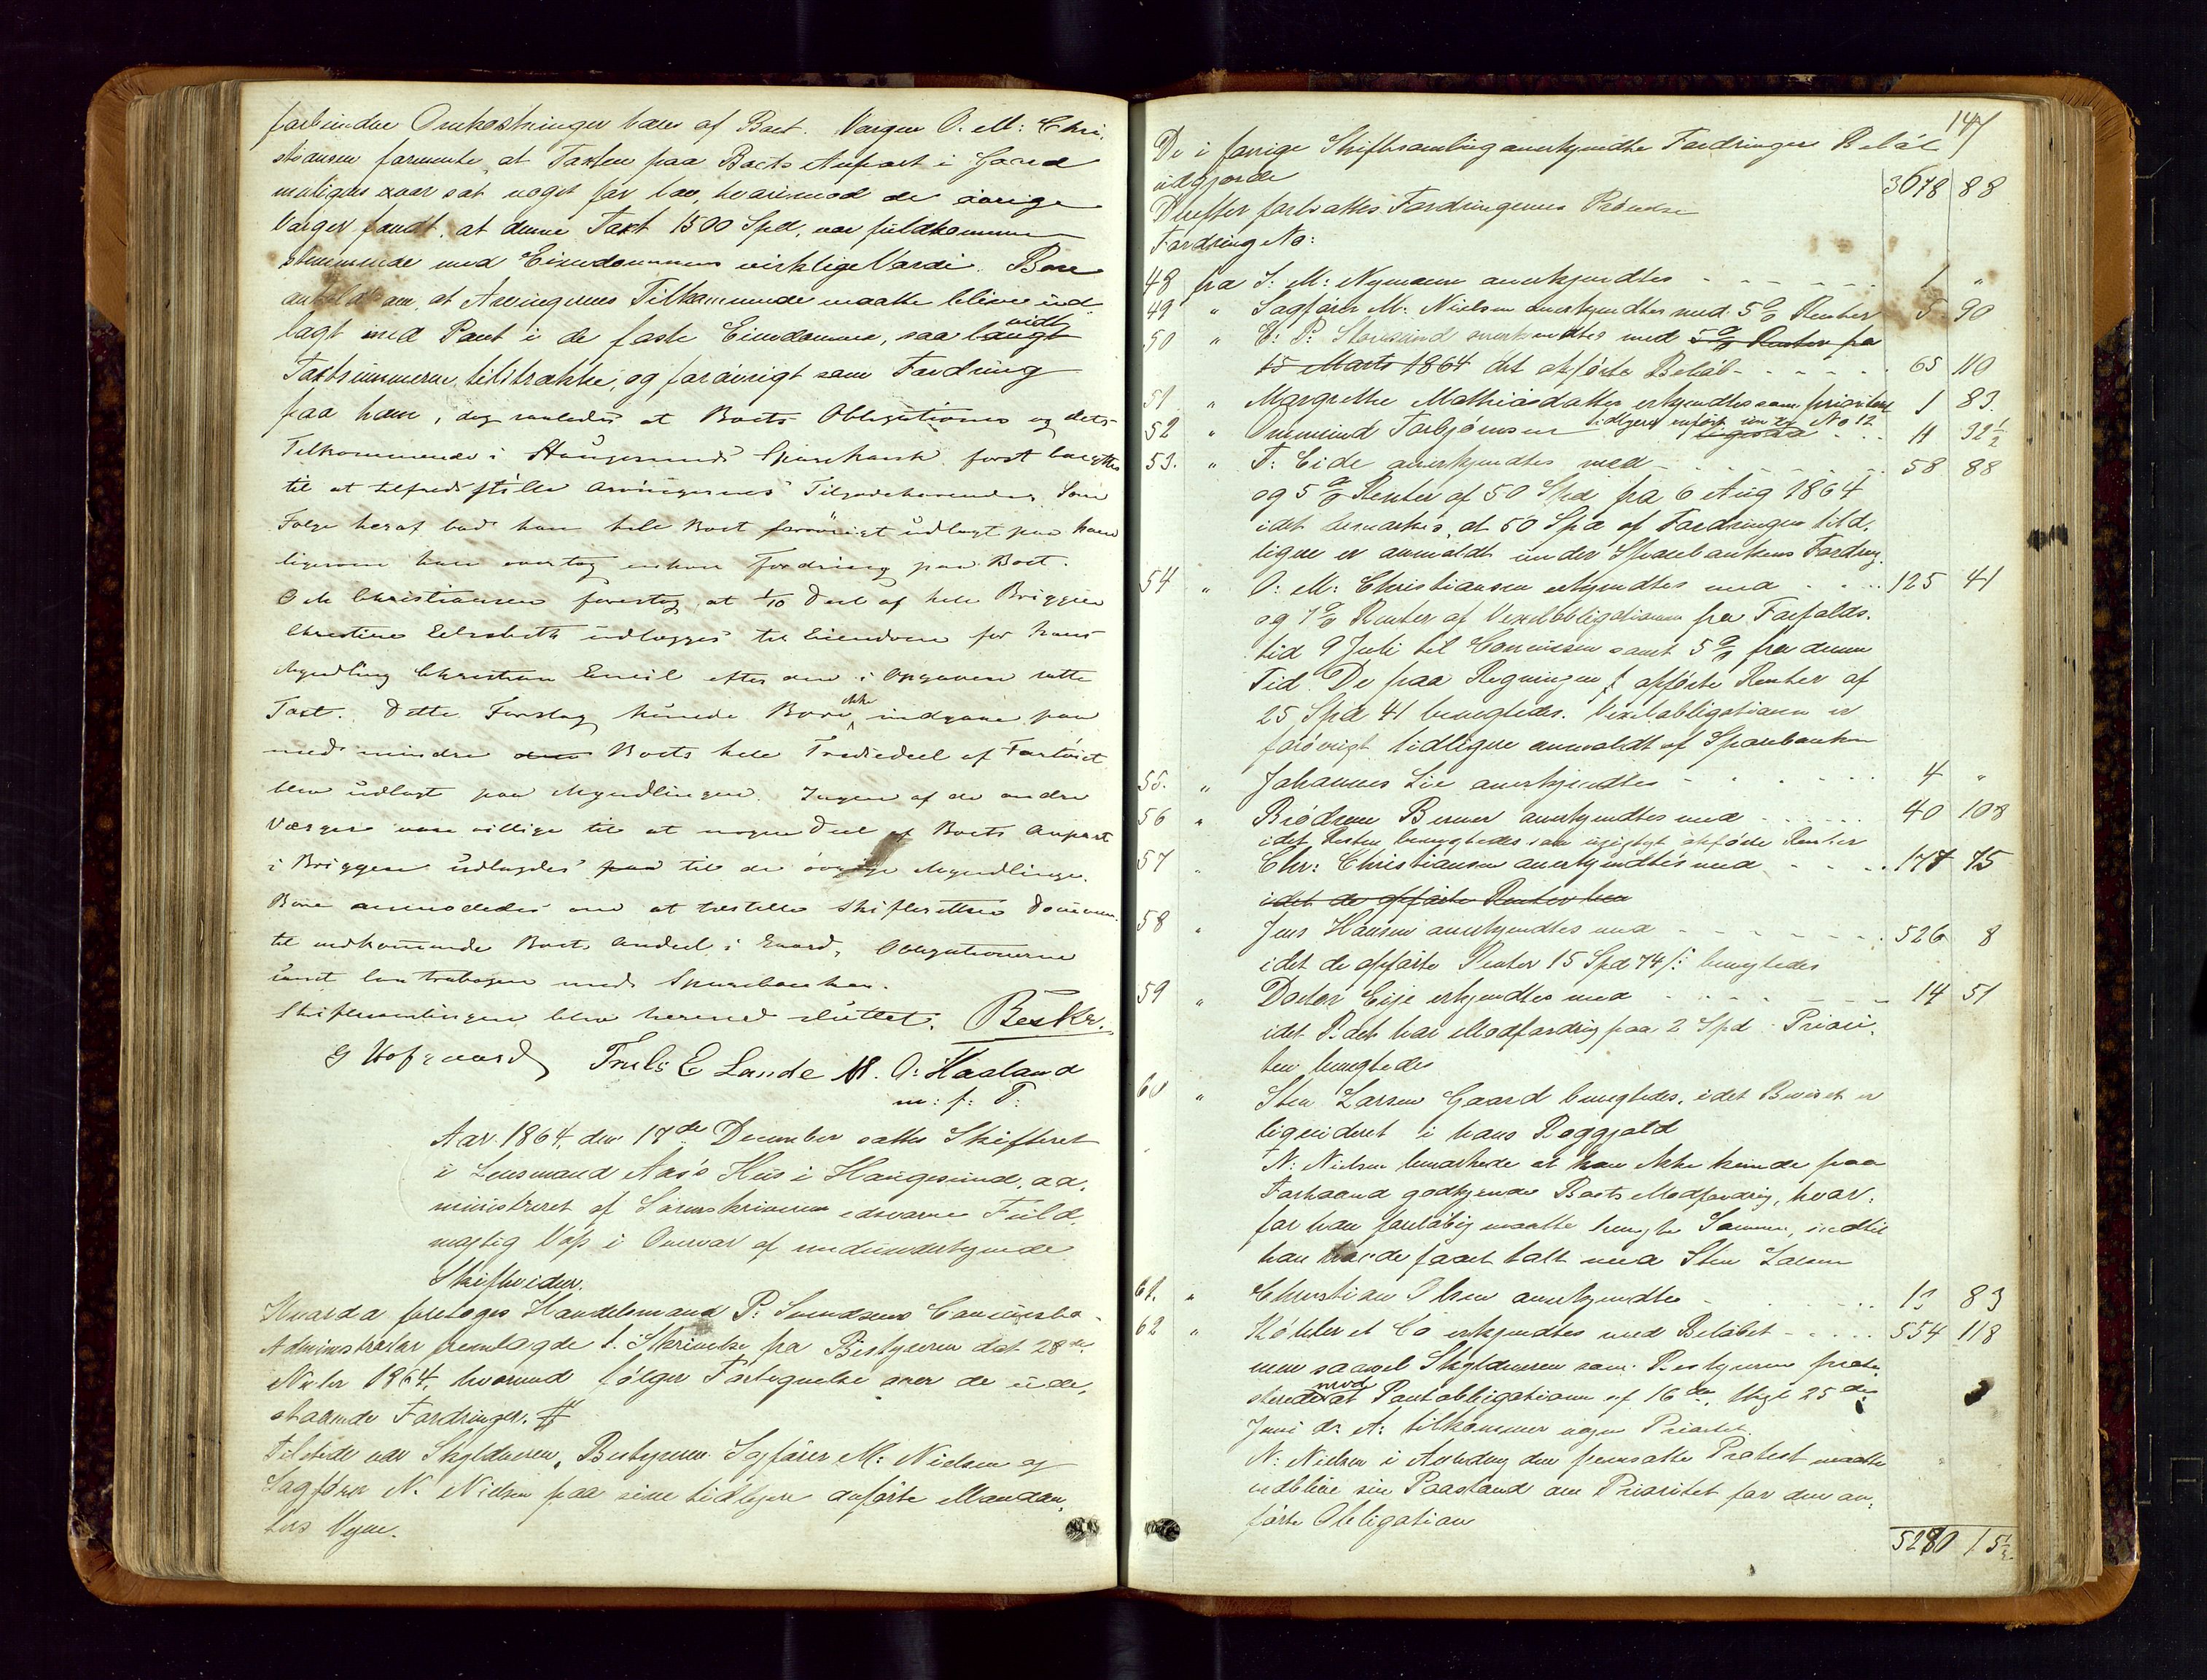 forbundne Omkostninger bæres af Boet. Værgen O. M: Chri,
stiansen formente, at Taxten paa Boets Anpart i Gaard
muligens var sat noget for lav, hvorimod de øvrige
Værger fandt, at denne Taxt 1500 Spd, var fuldkommen
stemmende med Eiendommens virkelige Værdi. Bore
anholdt om, at Arvingernes Tilkommende maatte blive ud-
lagt med Pant i de faste Eiendomme, saa langt vidt
Taxtsummerne tilstrække, og forøvrigt som Fordring
paa ham, dog saaledes at Boets Obligationer og dets
Tilkommende i Haugesunds Sparebank først benyttes
til at tilfredsstille Arvingernes Tilgodehavende. Som
Følge heraf bad han hele Boet forøvrigt udlagt paa ham
ligesom han overtog enhver Fordring paa Boet.
O M Christiansen foreslog, at 1/10 Deel af hele Briggen
Christine Elisabeth udlægges til Eiendom for hans
Myndling Christian Emil efter den i Opgaven satte
Taxt. Dette Forslag kunde Bore ikke indgaae paa
med mindre den Boets hele Trediedeel af Fartøiet
blev udlagt paa Myndlingen. Ingen af de andre
Værger var villige til at nogen Deel af Boets Anpart
i Briggen udlagdes paa til de øvrige Myndlinge.
Bore anmodedes om at tilstille Skifteretten Documen.
til vedkommende Boets Andeel i Gaard, Obligationerne
samt Contrabogen med Sparebanken.
Skiftesamlingen blev hermed sluttet. Beskr.
G Hofgaard Truls E Lande M. O: Haaland
m: f: P:
Aar 1864, den 17de December sattes Skifteret
i Lensmand Aas's Huus i Haugesund, ad,
ministreret af Sorenskriverens edsvorne Fuld,
mægtig Voss i Overvær af medunderskrevne
Skiftevidner.
Hvorda foretoges Handelsmand P: Svendsens Concursbo-
Administrator fremlagde 1. Skrivelse fra Bestyreren dat 28de
Novbr 1864, hvormed følger Fortegnelse over de ude,
staaende Fordringer. #
Tilstede var Skyldneren, Bestyreren Sagfører M: Nielsen og
Sagfører N. Nielsen paa sine tidligere anførte Mandan,
ters Vegne.
147
De i forrige Skiftesamling anerkjendte Fordringers Beløb
udgjorde 3678 88
Derefter fortsattes Fordringernes Prøvelse
Fordring No:
48 fra S. M: Nymann anerkjendtes - - - - - - 1 "
49 " Sagfører M: Nielsen anerkjendtes med 5 % Renter 5 90
50 " E. P: Storesund anerkjendtes med 5 % Renter fra
15 Marts 1864 det opførte Beløb - - - - - - 65 110
51 " Margrethe Mathiasdatter erkjendtes som prioriteret 1 83.
52 " Ommund Torbjørnsen tidligere anført under No 12 ligesaa . . . 11 32 1/2
53. " T: Eide anerkjendtes med - - - - - - 58 88
og 5 % Renter af 50 Spd fra 6 Aug 1864
idet bemærkes, at 50 Spd af Fordringen tid,
ligere er anmeldt under Sparebankens Fordring.
54 " O: M: Christiansen erkjendtes med - - . . 125 41
og 7 % Renter af Vexelobligationen fra Forfalds.
tid 9 Juli til Concursen samt 5 % fra denne
Tid. De paa Regningen f opførte Renter af
25 Spd 41 benegtedes. Vexelobligationen er
forøvrigt tidligere anmeldt af Sparebanken
55. " Johannes Lie anerkjendtes - - - - - 4 "
56 " Brødrene Berner anerkjendtes med . . . . . 40 108
idet Resten benegtedes som urigtigt opførte Renter
57 " Chr: Christiansen anerkjendtes med - - - 177 75
idet de opførte Renter ben
58 " Jens Hansen anerkjendtes med - - - - - - . 526 8
idet de opførte Renter 15 Spd 74 /: benegtedes
59 " Doctor Eije erkjendtes med - - - - - - 14 51
idet Boet har Modfordring paa 2 Spd. Priori,
ten benegtedes
60 " Sten Larsen Gaard benegtedes, idet Beviset er
liqvideret i hans Boggjæld
N: Nielsen bemærkede at han ikke kunde paa
Forhaand godkjende Boets Modfordring, hvor,
for han foreløbig maatte benegte Samme, indtil
han havde faaet talt med Sten Larsen
61. " Christian Olsen anerkjendtes - . . . . . 13 83
62 " Køhler et Co erkjendtes med Beløbet - . . . . 554 118
men saavel Skyldneren som Bestyreren prote,
sterede mod at Pantobligationen af 16de, thgl 25de
Juni d: A: tilkommer nogen Prioritet.
N: Nielsen i Anledning den fremsatte Protest maatte
vedblive sin Paastand om Prioritet for den an,
førte Obligation
5280 15 1/2